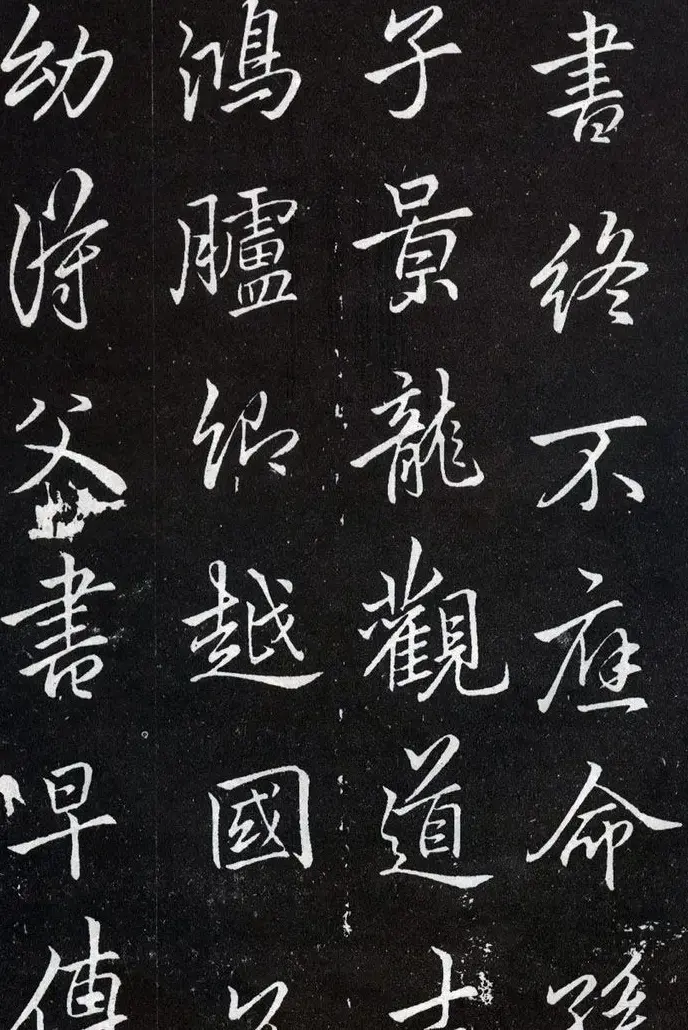 書終不應命
子景龍觀道士
鴻臚卿越國公
幼得父書早傳